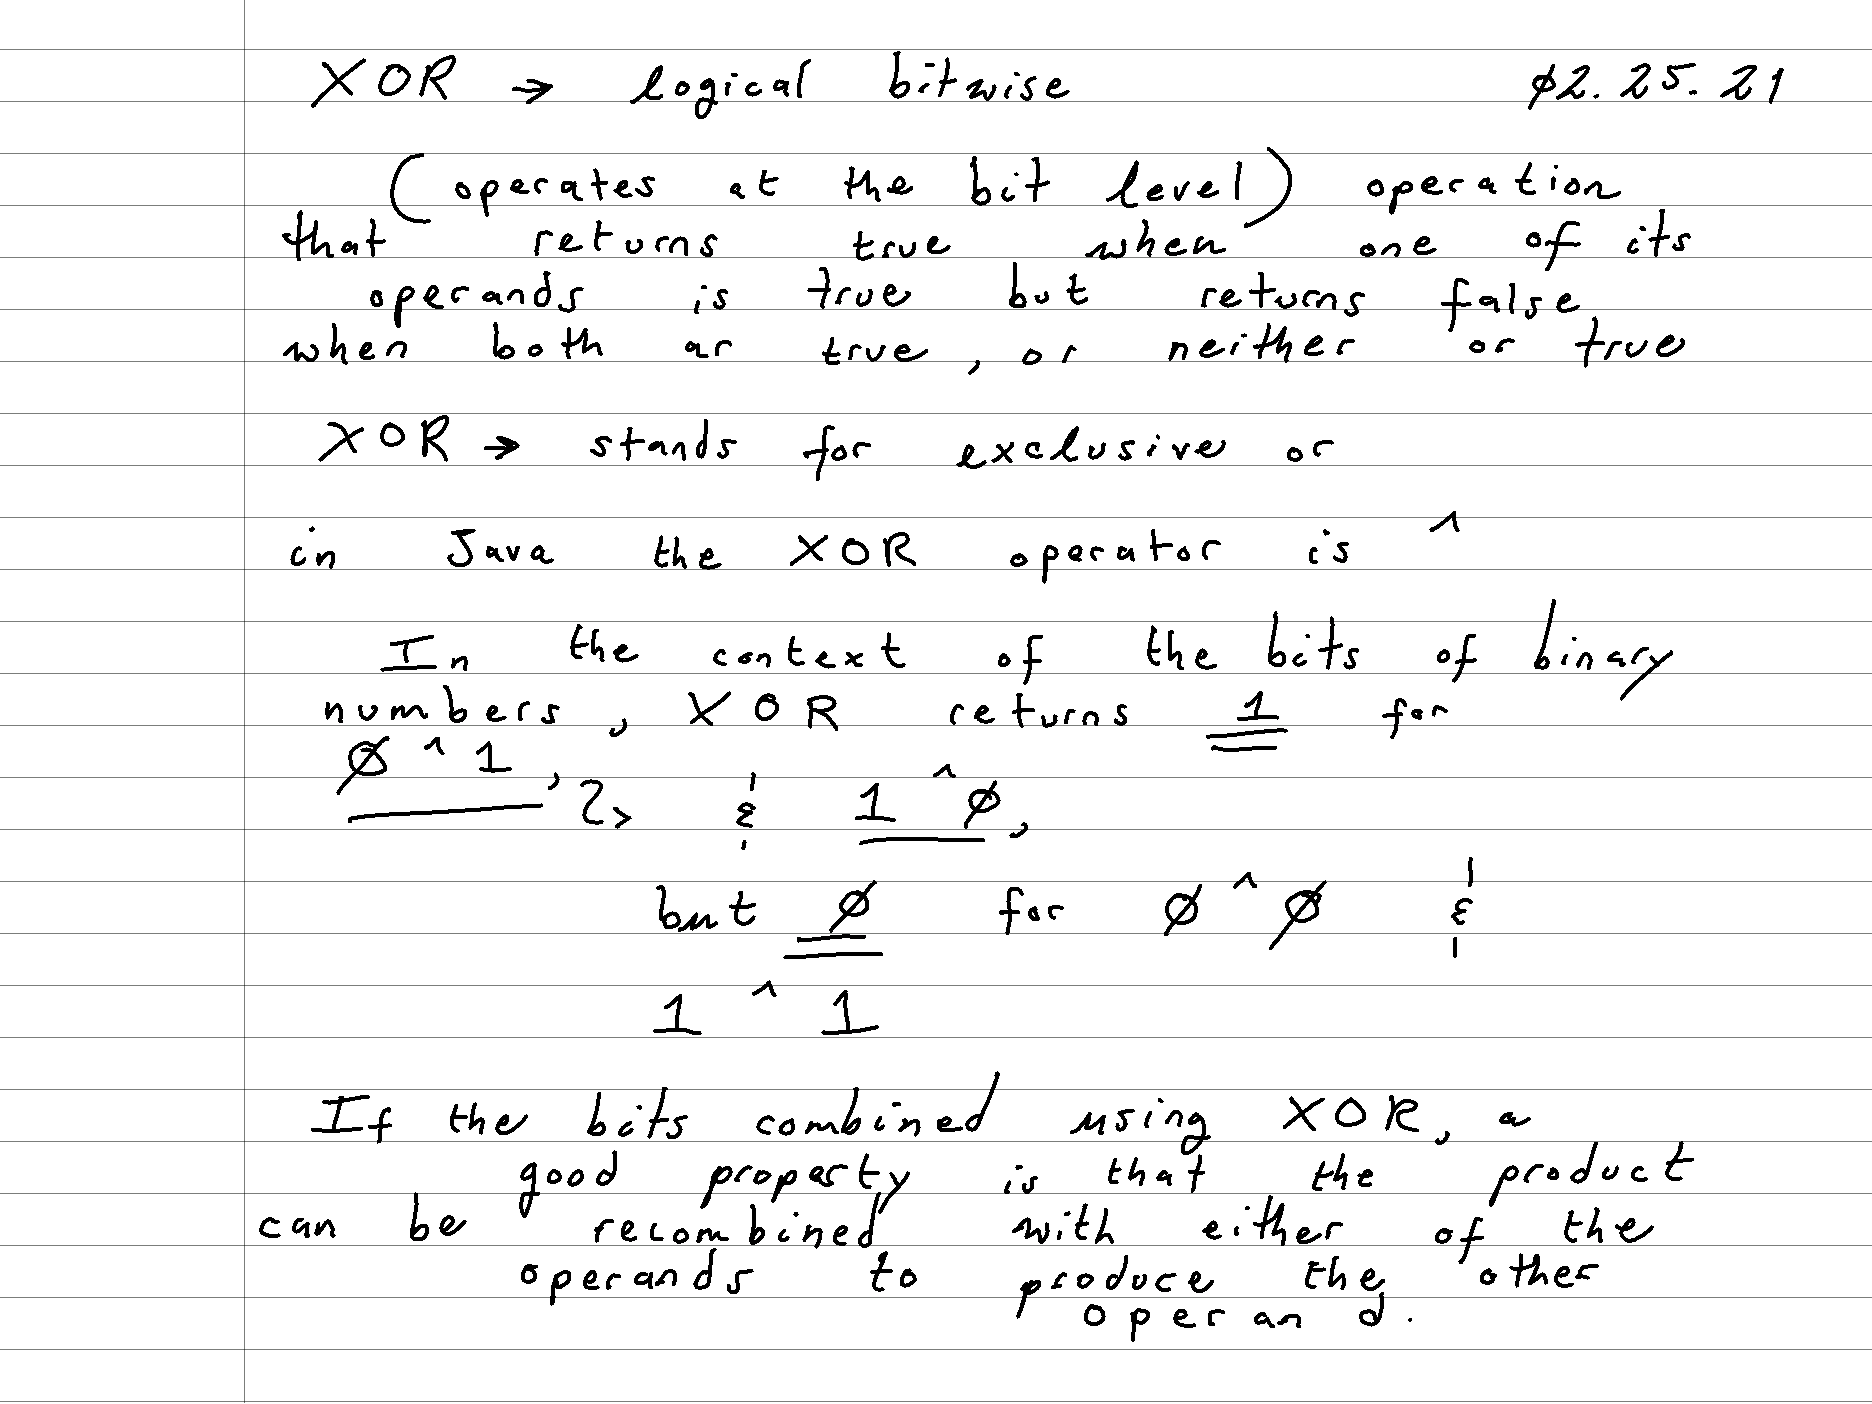 XOR → logical bitwise 02.25.21
(operates at the bit level) operation
that returns true when one of its
operands is true but returns false
when both ar true, or neither or true
XOR → stands for exclusive or
in Java the XOR operator is ^
In the context of the bits of binary
numbers, XOR returns 1 for
0 ^ 1,
& 1 ^ 0,
but 0 for 0 ^ 0 &
1 ^ 1
If the bits combined using XOR, a
good property is that the product
can be recombined with either of the
operands to produce the other
operand.